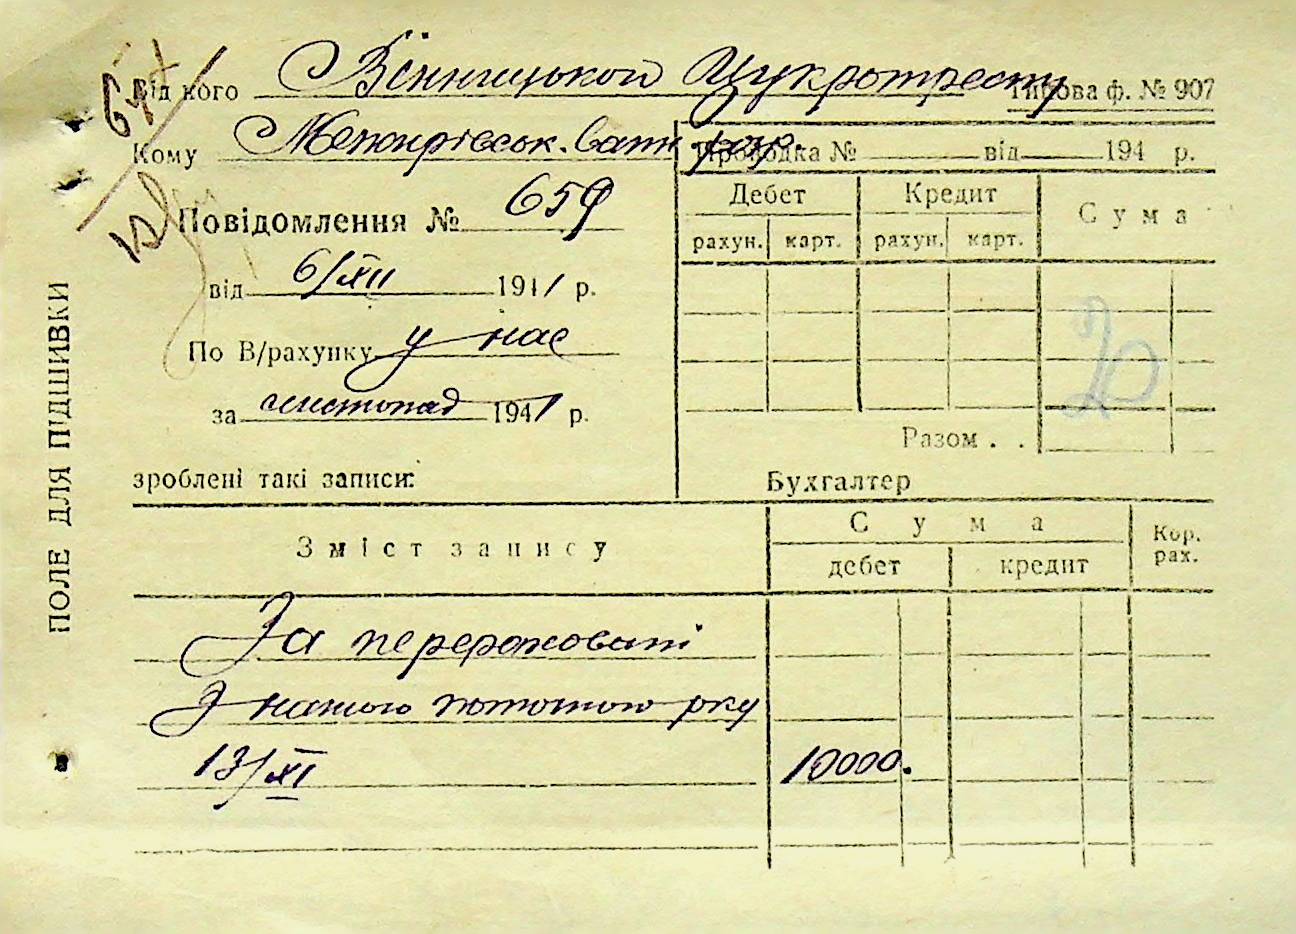 Від кого Вінницького Цукротресту
Типова ф. № 907
Кому
Повідомлення № 659
від 6/XII 1941 р.
По В/рахунку у нас
за листопад 1941 р.
зроблені такі записи:
Проводка № від 194 р.
Дебет Кредит Сума
рахун. карт. рахун. карт.
Разом . .
Бухгалтер
20
Зміст запису Сума Кор. рах.
дебет кредит
За перераховані
З нашого поточного рку
13/XI 10000.
ПОЛЕ ДЛЯ ПІДШИВКИ